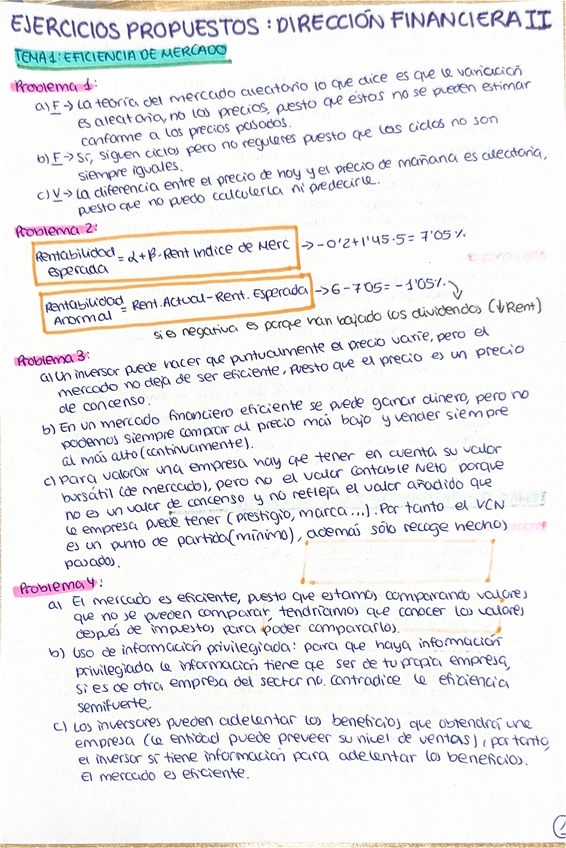 EJERCICIOS PROPUESTOS: DIRECCIÓN FINANCIERA II
TEMA 1: EFICIENCIA DE MERCADO
Problema 1:
a) F → La teoría del mercado aleatorio lo que dice es que la variación
es aleatoria, no los precios, puesto que éstos no se pueden estimar
conforme a los precios pasados.
b) F → Sí, siguen ciclos pero no regulares puesto que los ciclos no son
siempre iguales.
c) V → La diferencia entre el precio de hoy y el precio de mañana es aleatoria,
puesto que no puedo calcularla ni predecirla.
Problema 2:
Rentabilidad Esperada = α + β · Rent Indice de Merc → -0'2 + 1'45 · 5 = 7'05 %
Rentabilidad Anormal = Rent. Actual - Rent. Esperada → 6 - 7'05 = -1'05%
si es negativa es porque han bajado los dividendos (↓Rent)
Problema 3:
a) Un inversor puede hacer que puntualmente el precio varíe, pero el
mercado no deja de ser eficiente, puesto que el precio es un precio
de concenso.
b) En un mercado financiero eficiente se puede ganar dinero, pero no
podemos siempre comprar al precio más bajo y vender siempre
al más alto (continuamente).
c) Para valorar una empresa hay que tener en cuenta su valor
bursátil (de mercado), pero no el valor contable Neto porque
no es un valor de concenso y no refleja el valor añadido que
la empresa puede tener (prestigio, marca...). Por tanto el VCN
es un punto de partida (mínimo), además sólo recoge hechos
pasados.
Problema 4:
a) El mercado es eficiente, puesto que estamos comparando valores
que no se pueden comparar, tendríamos que conocer los valores
después de impuestos para poder compararlos.
b) Uso de información privilegiada: para que haya información
privilegiada la información tiene que ser de tu propia empresa,
si es de otra empresa del sector no. contradice la eficiencia
semifuerte.
c) Los inversores pueden adelantar los beneficios que obtendrá una
empresa (la entidad puede preveer su nivel de ventas), por tanto,
el inversor sí tiene información para adelantar los beneficios.
El mercado es eficiente.